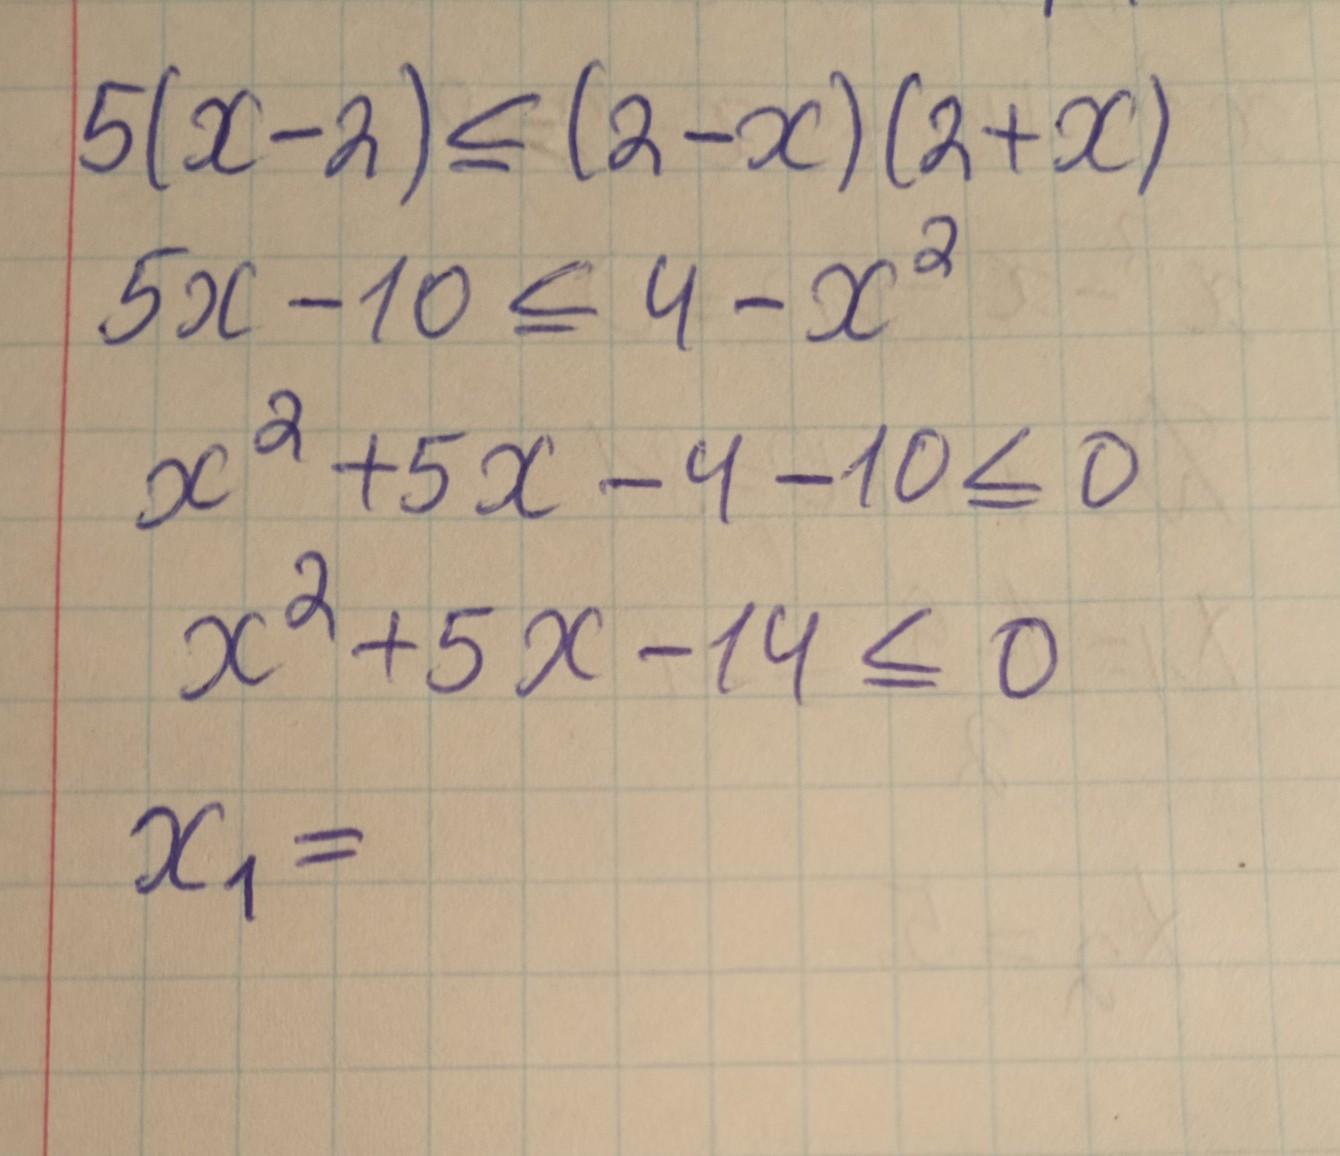 5(x-2)≤(2-x)(2+x)
5x-10≤4-x²
x²+5x-4-10≤0
x²+5x-14≤0
x₁=